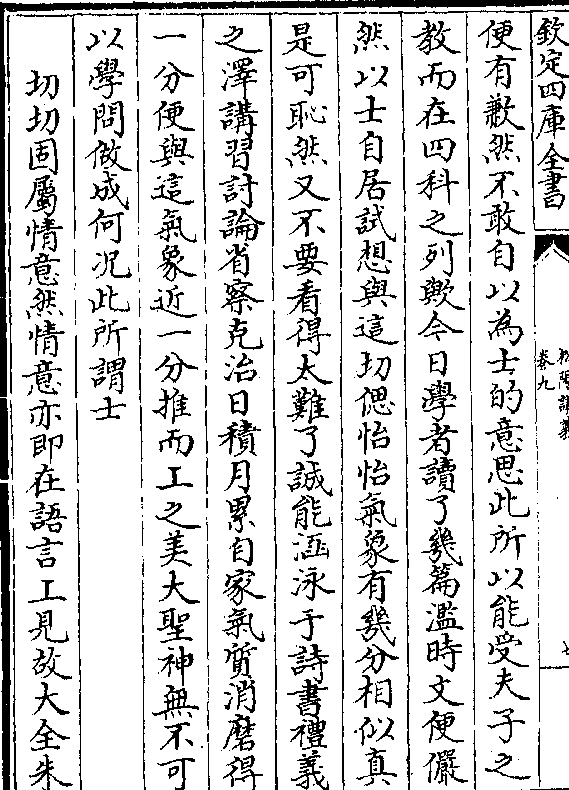 欽定四庫全書
松陽講義
卷九
七
便有歉然不敢自以為士的意思此所以能受夫子之
教而在四科之列歟今日學者讀了幾篇濫時文便儼
然以士自居試想與這切偲怡怡氣象有幾分相似真
是可恥然又不要看得太難了誠能涵泳于詩書禮義
之澤講習討論省察克治日積月累自家氣質消磨得
一分便與這氣象近一分推而上之美大聖神無不可
以學問做成何况此所謂士
切切固屬情意然情意亦即在語言上見故大全朱